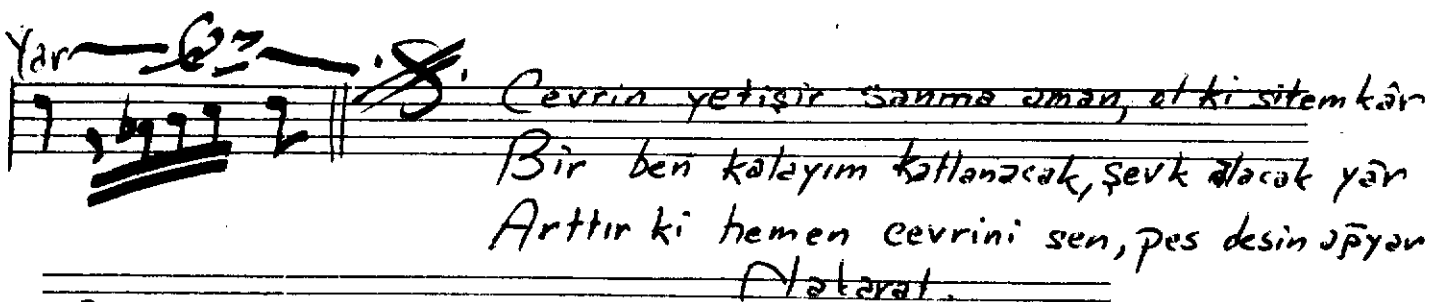 Yar
Cevrin yetişir sanma aman, ol ki sitemkâr
Bir ben kalayım katlanacak, şevk alacak yâr
Arttır ki hemen cevrini sen, pes desin ağyar
Nakarat.